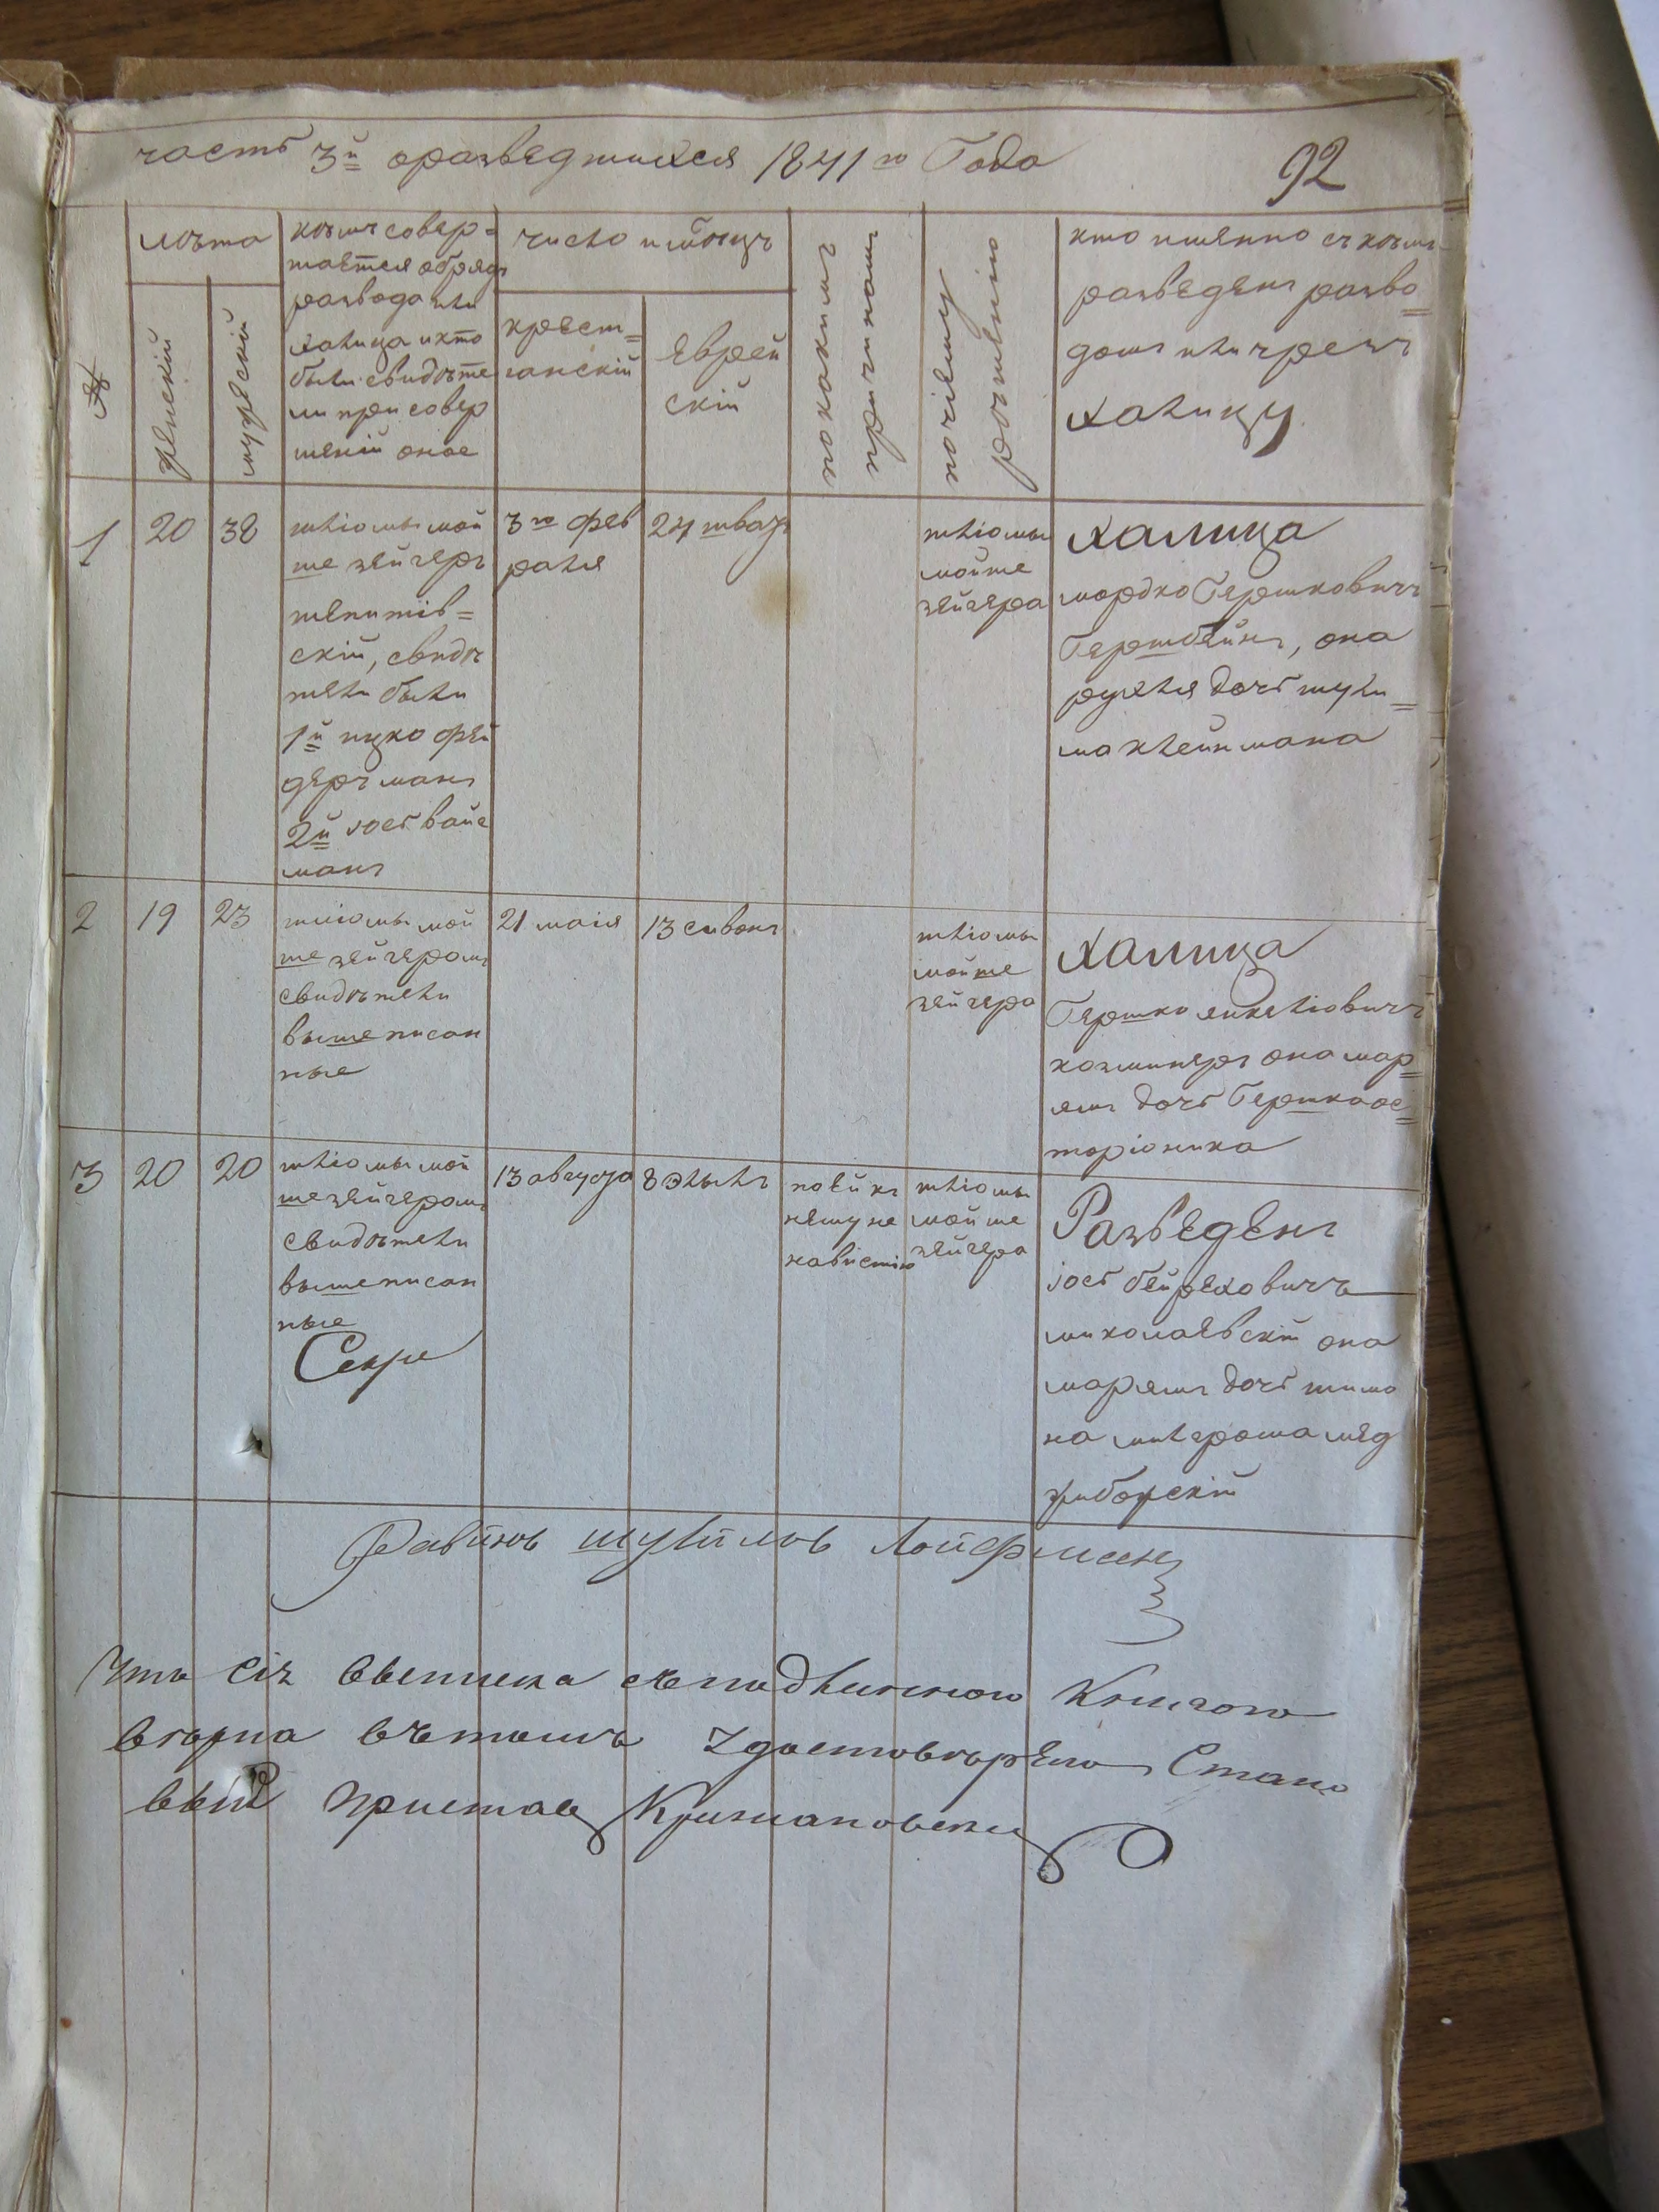 часть 3й оразведшихся 1841го Года
92
№
лѣта
женскій
мужескій
кѣмъ совер=
шается обрядъ
развода или
халица и кто
были свидѣте
ли при совер
шеніи оное
число и мѣсяцъ
христ=
іанскій
Еврей
скій
по какимъ
причинамъ
по чіему
рѣшенію
кто имянно съ кѣмъ
разведенъ разво
домъ или чрезъ
халицу
1
20
38
шліомы мой
ше зейгеръ
свидѣ
тели были
1й ицко фей
дерманъ
2й іось вайс
манъ
3го фев
раля
24 шватъ
шліомы
мойше
зейгера
халица
мордко Гершковичъ
Герштейнъ, она
рухля дочь шули
ма клейнмана
2
19
23
шліомы мой
ше зейгеромъ
свидѣтели
вышеписан
ные
21 маія
13 сивонъ
шліомы
мойше
зейгера
халица
Гершко янкеліовичъ
она мар
ямъ дочь Гершка ос
3
20
20
шліомы мой
ше зейгеромъ
свидѣтели
вышеписан
ные
13 августа
8 Элылъ
шліомы
мойше
зейгера
Разведенъ
іось бейреховичъ
миколаевскій она
марямъ дочь шимо
на
Равинъ шулимъ Лойфман
Что сія выписка съ подлинною Книгою
вѣрна въ томъ Удостовѣряю Стано
вый Пристав Крижановски